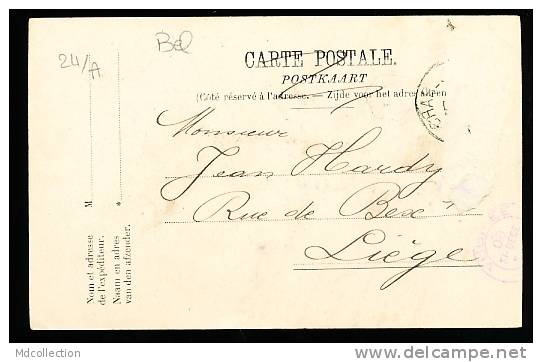 24/A
Bel
CARTE POSTALE.
POSTKAART
(Côté réservé à l'adresse. — Zijde voor het adres
Monsieur
Jean Hardy
Rue de Bex
Liège
M
Nom et adresse
de l'expéditeur.
Naam en adres
van den afzender.
Mdcollection
delcampe.net